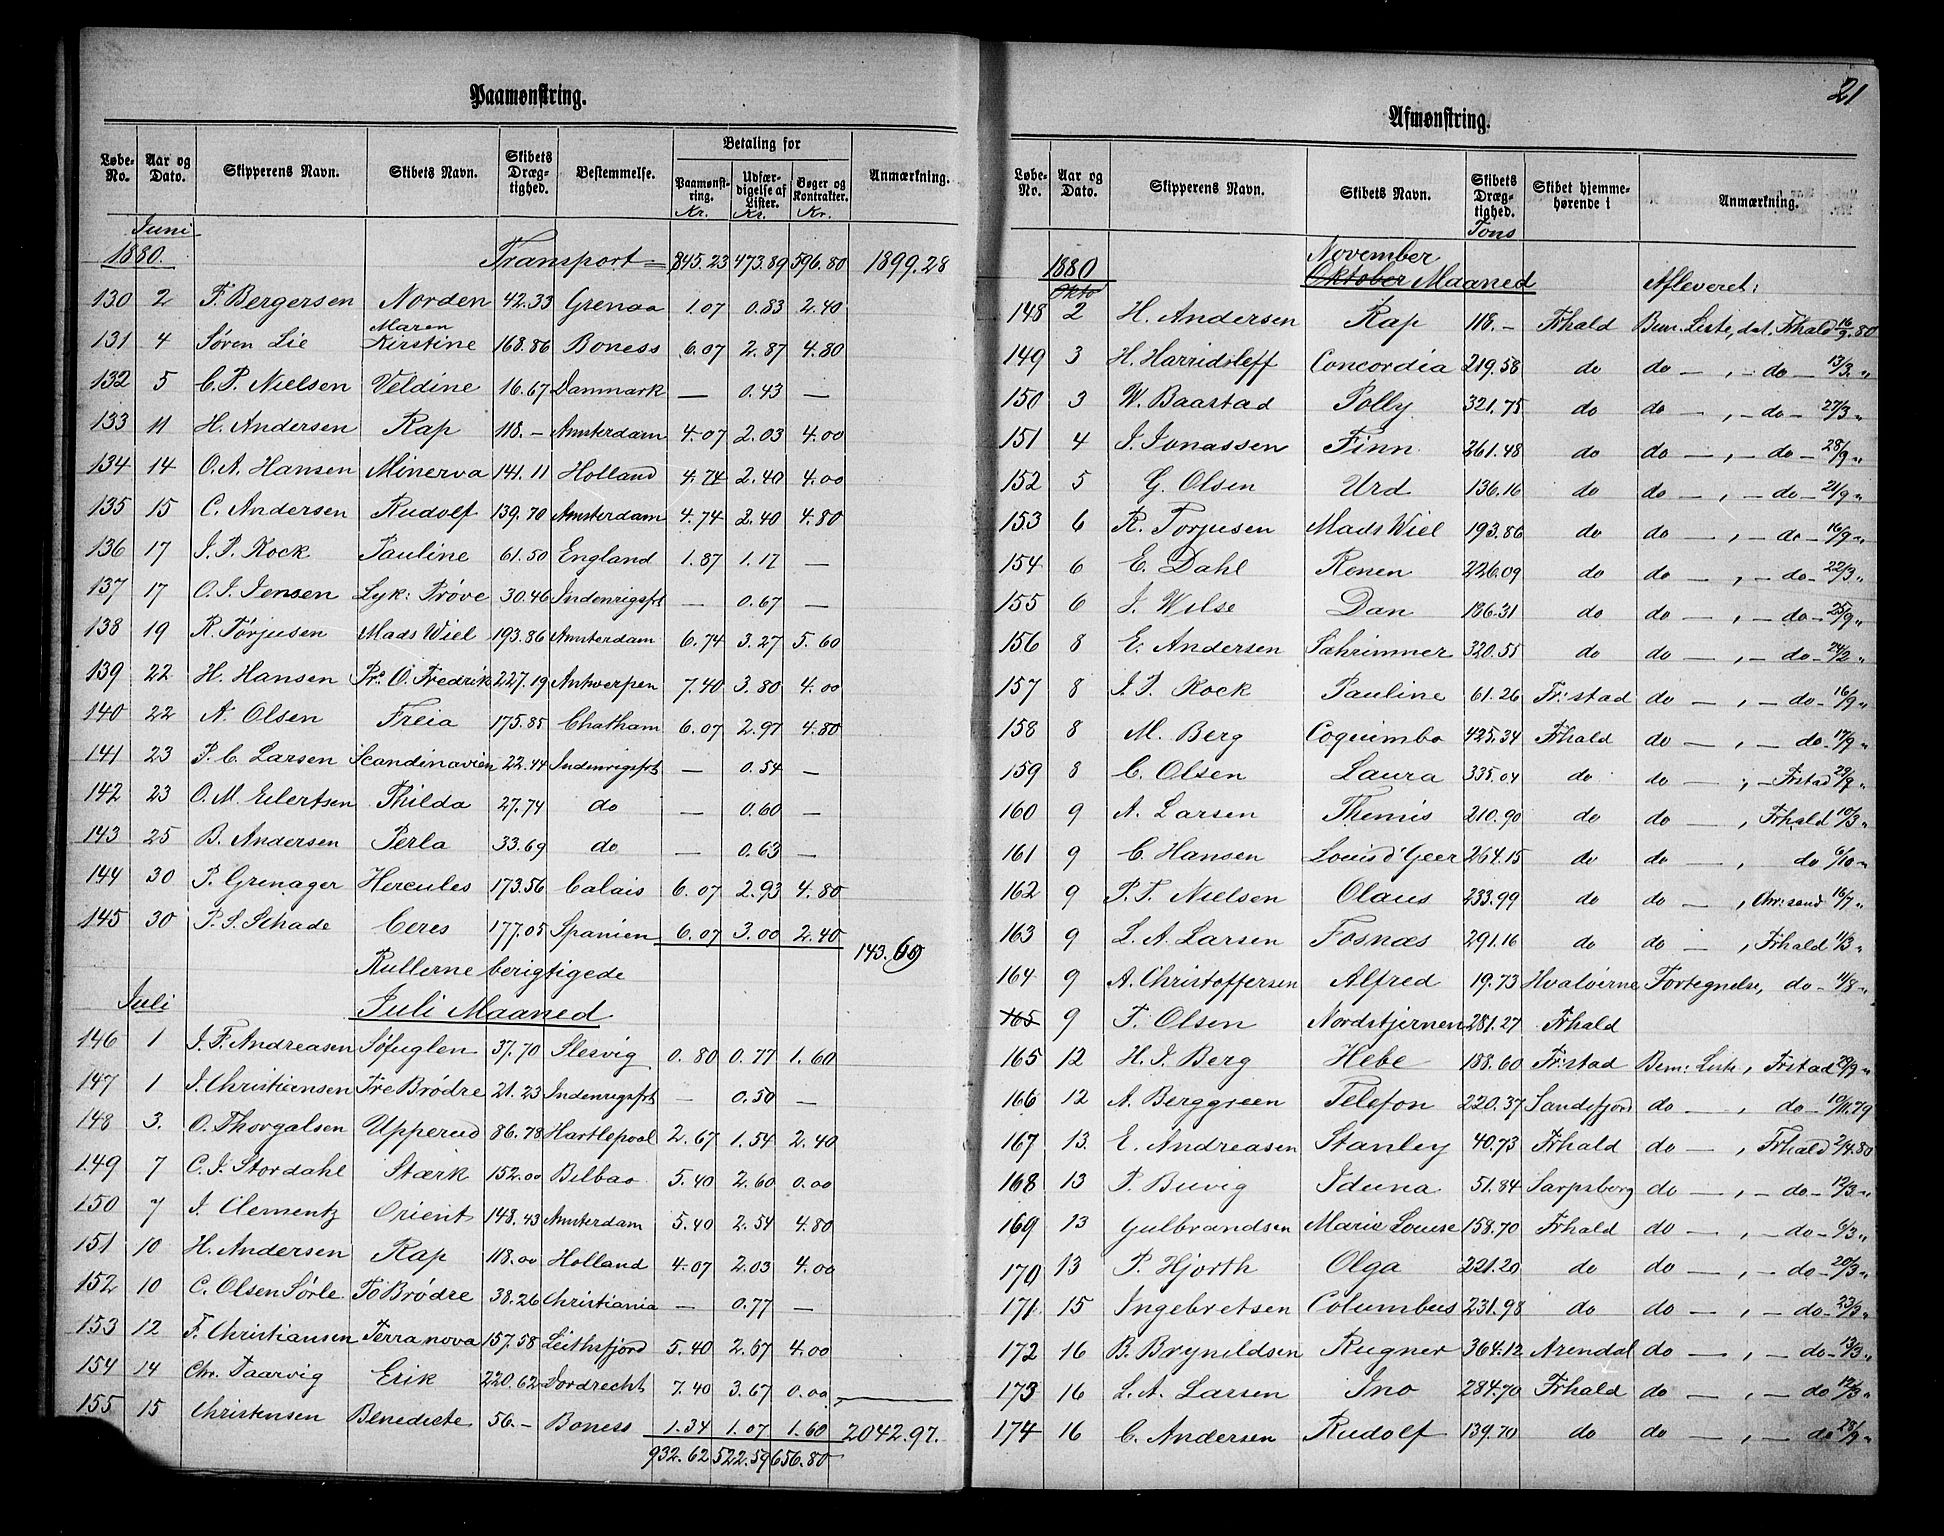 Paamønstring.
Løbe-No. Aar og Dato. Skipperens Navn. Skibets Navn. Skibets Dræg-tighed. Bestemmelse. Betaling for Paamønst-ring. Kr. Udfær-digelse af Lister. Kr. Bøger og Kontrakter. Kr. Anmærkning.
Juni
1880. Transport = 845.23 473.89 596.80 1899.28
130 2 F. Bergersen Norden 42.33 Grenaa 1.07 0.83 2.40
131 4 Søren Lie Maren Kirstine 168.86 Boness 6.07 2.87 4.80
132 5 C. P. Nielsen Veldine 16.67 Danmark — 0.43 —
133 11 H. Andersen Rap 118.- Amsterdam 4.07 2.03 4.00
134 14 O. A. Hansen Minerva 141.11 Holland 4.74 2.40 4.00
135 15 C. Andersen Rudolf 139.70 Amsterdam 4.74 2.40 4.80
136 17 J. P. Kock Pauline 61.50 England 1.87 1.17 —
137 17 O. J. Jensen Lyk: Prøve 30.46 Indenrigsfrt — 0.67 —
138 19 R. Tørjusen Mads Wiel 193.86 Amsterdam 6.74 3.27 5.60
139 22 H. Hansen Pr. O. Fredrik 227.19 Antwerpen 7.40 3.80 4.00
140 22 A. Olsen Freia 175.85 Chatham 6.07 2.97 4.80
141 23 P. C. Larsen Scandinavien 22.44 Indenrigsfrt — 0.54 —
142 23 O. M. Eilertsen Thilda 27.74 do — 0.60 —
143 25 B. Andersen Perla 33.69 do — 0.63 —
144 30 P. Grenager Hercules 173.56 Calais 6.07 2.93 4.80
145 30 P. S. Schade Ceres 177.05 Spanien 6.07 3.00 2.40 143.69
Rullerne berigtigede
Juli Juli Maaned
146 1 J. F. Andreasen Søfuglen 37.70 Slesvig 0.80 0.77 1.60
147 1 J. Christiansen Tre Brødre 21.23 Indenrigsfrt — 0.50 —
148 3. O. Thorgalsen Upperud 86.78 Hartlepool 2.67 1.54 2.40
149 7 C. J. Stordahl Stærk 152.00 Bilbao 5.40 2.60 0.00
150 7 J. Clementz Orient 148.43 Amsterdam 5.40 2.54 4.80
151 10 H. Andersen Rap 118.00 Holland 4.07 2.03 4.00
152 10 C. Olsen Sørle To Brødre 38.26 Christiania — 0.77 —
153 12 F. Christiansen Terra nova 157.58 Leithsfjord 5.40 2.67 4.00
154 14 Chr. Taarvig Erik 220.62 Dordrecht 7.40 3.67 0.00
155 15 Christensen Benedicte 56.- Boness 1.34 1.07 1.60 2042.97.
932.62 522.59 656.80
21
Afmønstring.
Løbe-No. Aar og Dato. Skipperens Navn. Skibets Navn. Skibets Dræg-tighed. Tons Skibet hjemme-hørende i Anmærkning.
November
1880 Oktober Maaned Afleveret:
Okto
148 2 H. Andersen Rap 118.- Frhald Bem. Liste, dat. Frhald 16/9.80
149 3 H. Harridsleff Concordia 219.58 do do — , — do — 13/3 "
150 3 W. Baastad Polly 321.75 do do — , — do — 27/3 "
151 4 J. Jonassen Finn 261.48 do do — , — do — 28/9 "
152 5 G. Olsen Urd 136.16 do do — , — do — 21/9 "
153 6 R. Torjusen Mads Wiel 193.86 do do — , — do — 16/9 "
154 6 E. Dahl Renen 226.09 do do — , — do — 22/3 "
155 6 J. Wilse Dan 186.31 do do — , — do — 25/9 "
156 8 E. Andersen Sahrimner 320.55 do do — , — do — 24/2 "
157 8 J. P. Kock Pauline 61.26 Fr:stad do — , — do — 16/9 "
158 8 M. Berg Coquimbo 425.34 Frhald do — , — do — 17/9 "
159 8 C. Olsen Laura 335.04 do do — , — Frstad 29/9 "
160 9 A. Larsen Themis 210.90 do do — , Frhald 10/3 "
161 9 C. Hansen Louis d'Geer 264.15 do do — , do 6/10 "
162 9 P. T. Nielsen Olaus 233.99 do do — , Chr:sand 16/7 "
163 9 L. A. Larsen Fosnæs 291.16 do do — , Frhald 11/3 "
164 9 A. Christoffersen Alfred 19.73 Hvaløerne Fortegnelse, do — 11/8 "
165 9 T. Olsen Nordstjernen 281.27 Frhald
165 12 H. J. Berg Hebe 188.60 Fr:stad Bem: Liste, Frstad 28/9 "
166 12 A. Berggreen Telefon 220.37 Sandefjord do — , do — 10/11.79
167 13. E. Andreasen Stanley 40.73 Frhald do — , Frhald 2/4.80
168 13 P. Buvig Iduna 51.84 Sarpsborg do — , — do — 12/3 "
169 13 Gulbrandsen Marie Louise 158.70 Frhald do — , — do — 6/3 "
170 13 P. Hjorth Olga 221.20 do do — , — do — 20/3 "
171 15 Ingebretsen Columbus 231.98 do do — , — do — 23/3 "
172 16 B. Brynildsen Rugner 364.12 Arendal do — , — do — 13/3 "
173 16 L. A. Larsen Ino 284.70 Frhald do — , — do 12/3 "
174 16 C. Andersen Rudolf 139.70 do do — , — do 28/9 "